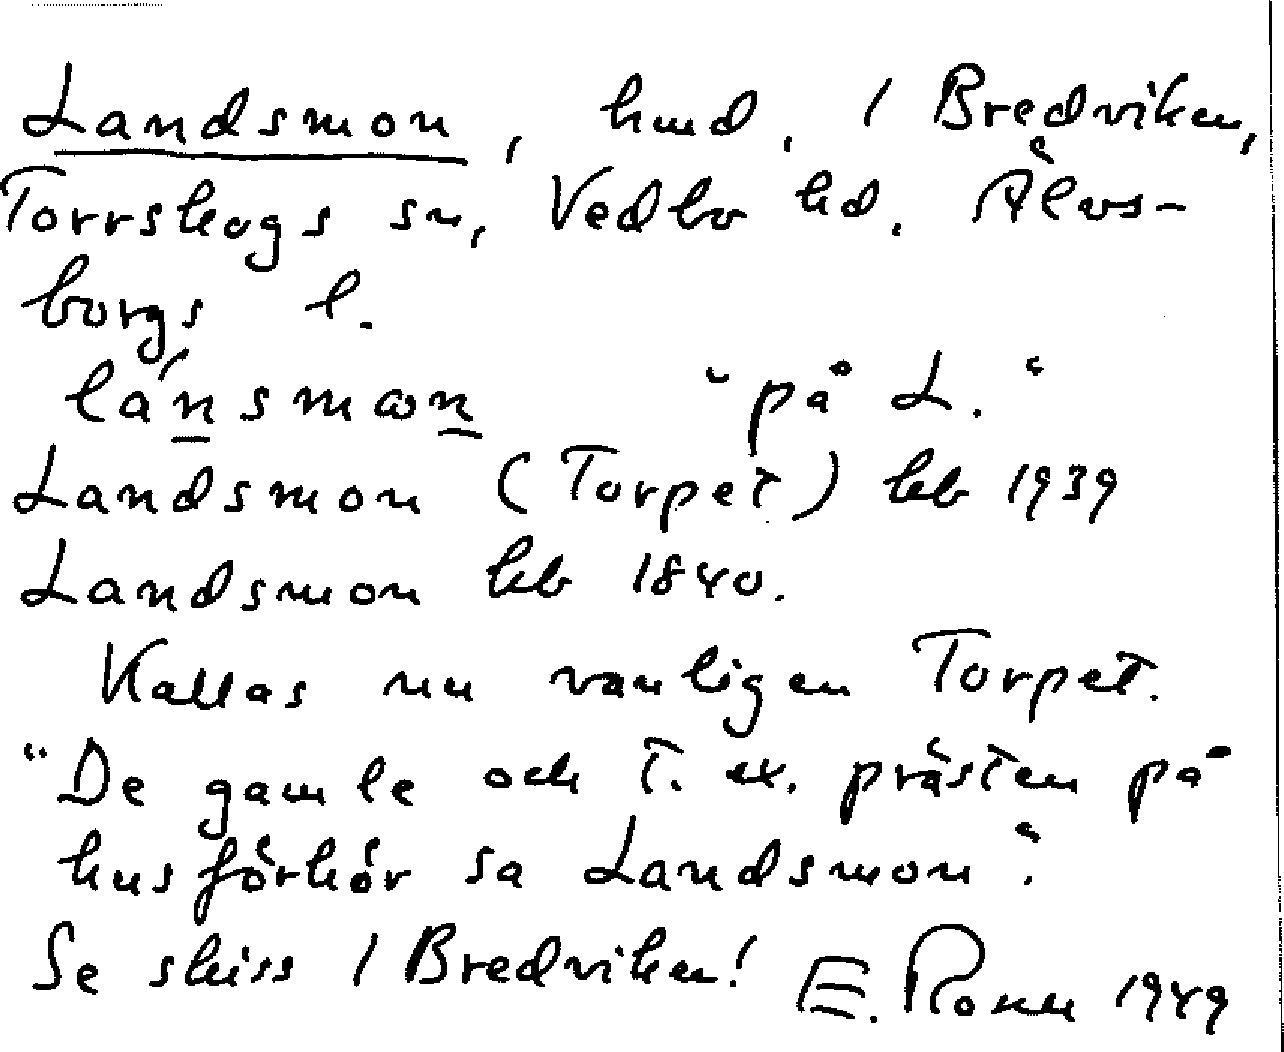 Landsmon, hmd, 1 Bredviken,
Torrskogs sn, Vedbo hd. Älvs-
borgs l.
lánsmɷn "på L."
Landsmon (Torpet) kb 1939
Landsmon kb 1840.
Kallas nu vanligen Torpet.
"De gamle och t. ex. prästen på
husförhör sa Landsmon".
Se skiss 1 Bredviken! E. Ronn 1949